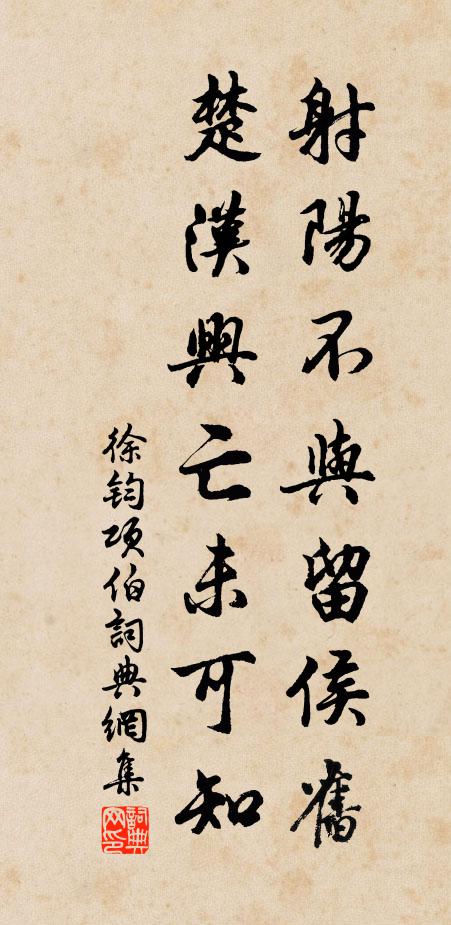 射陽不與留侯舊
楚漢興亡未可知
徐鈞項伯詞典網集
詞典网印